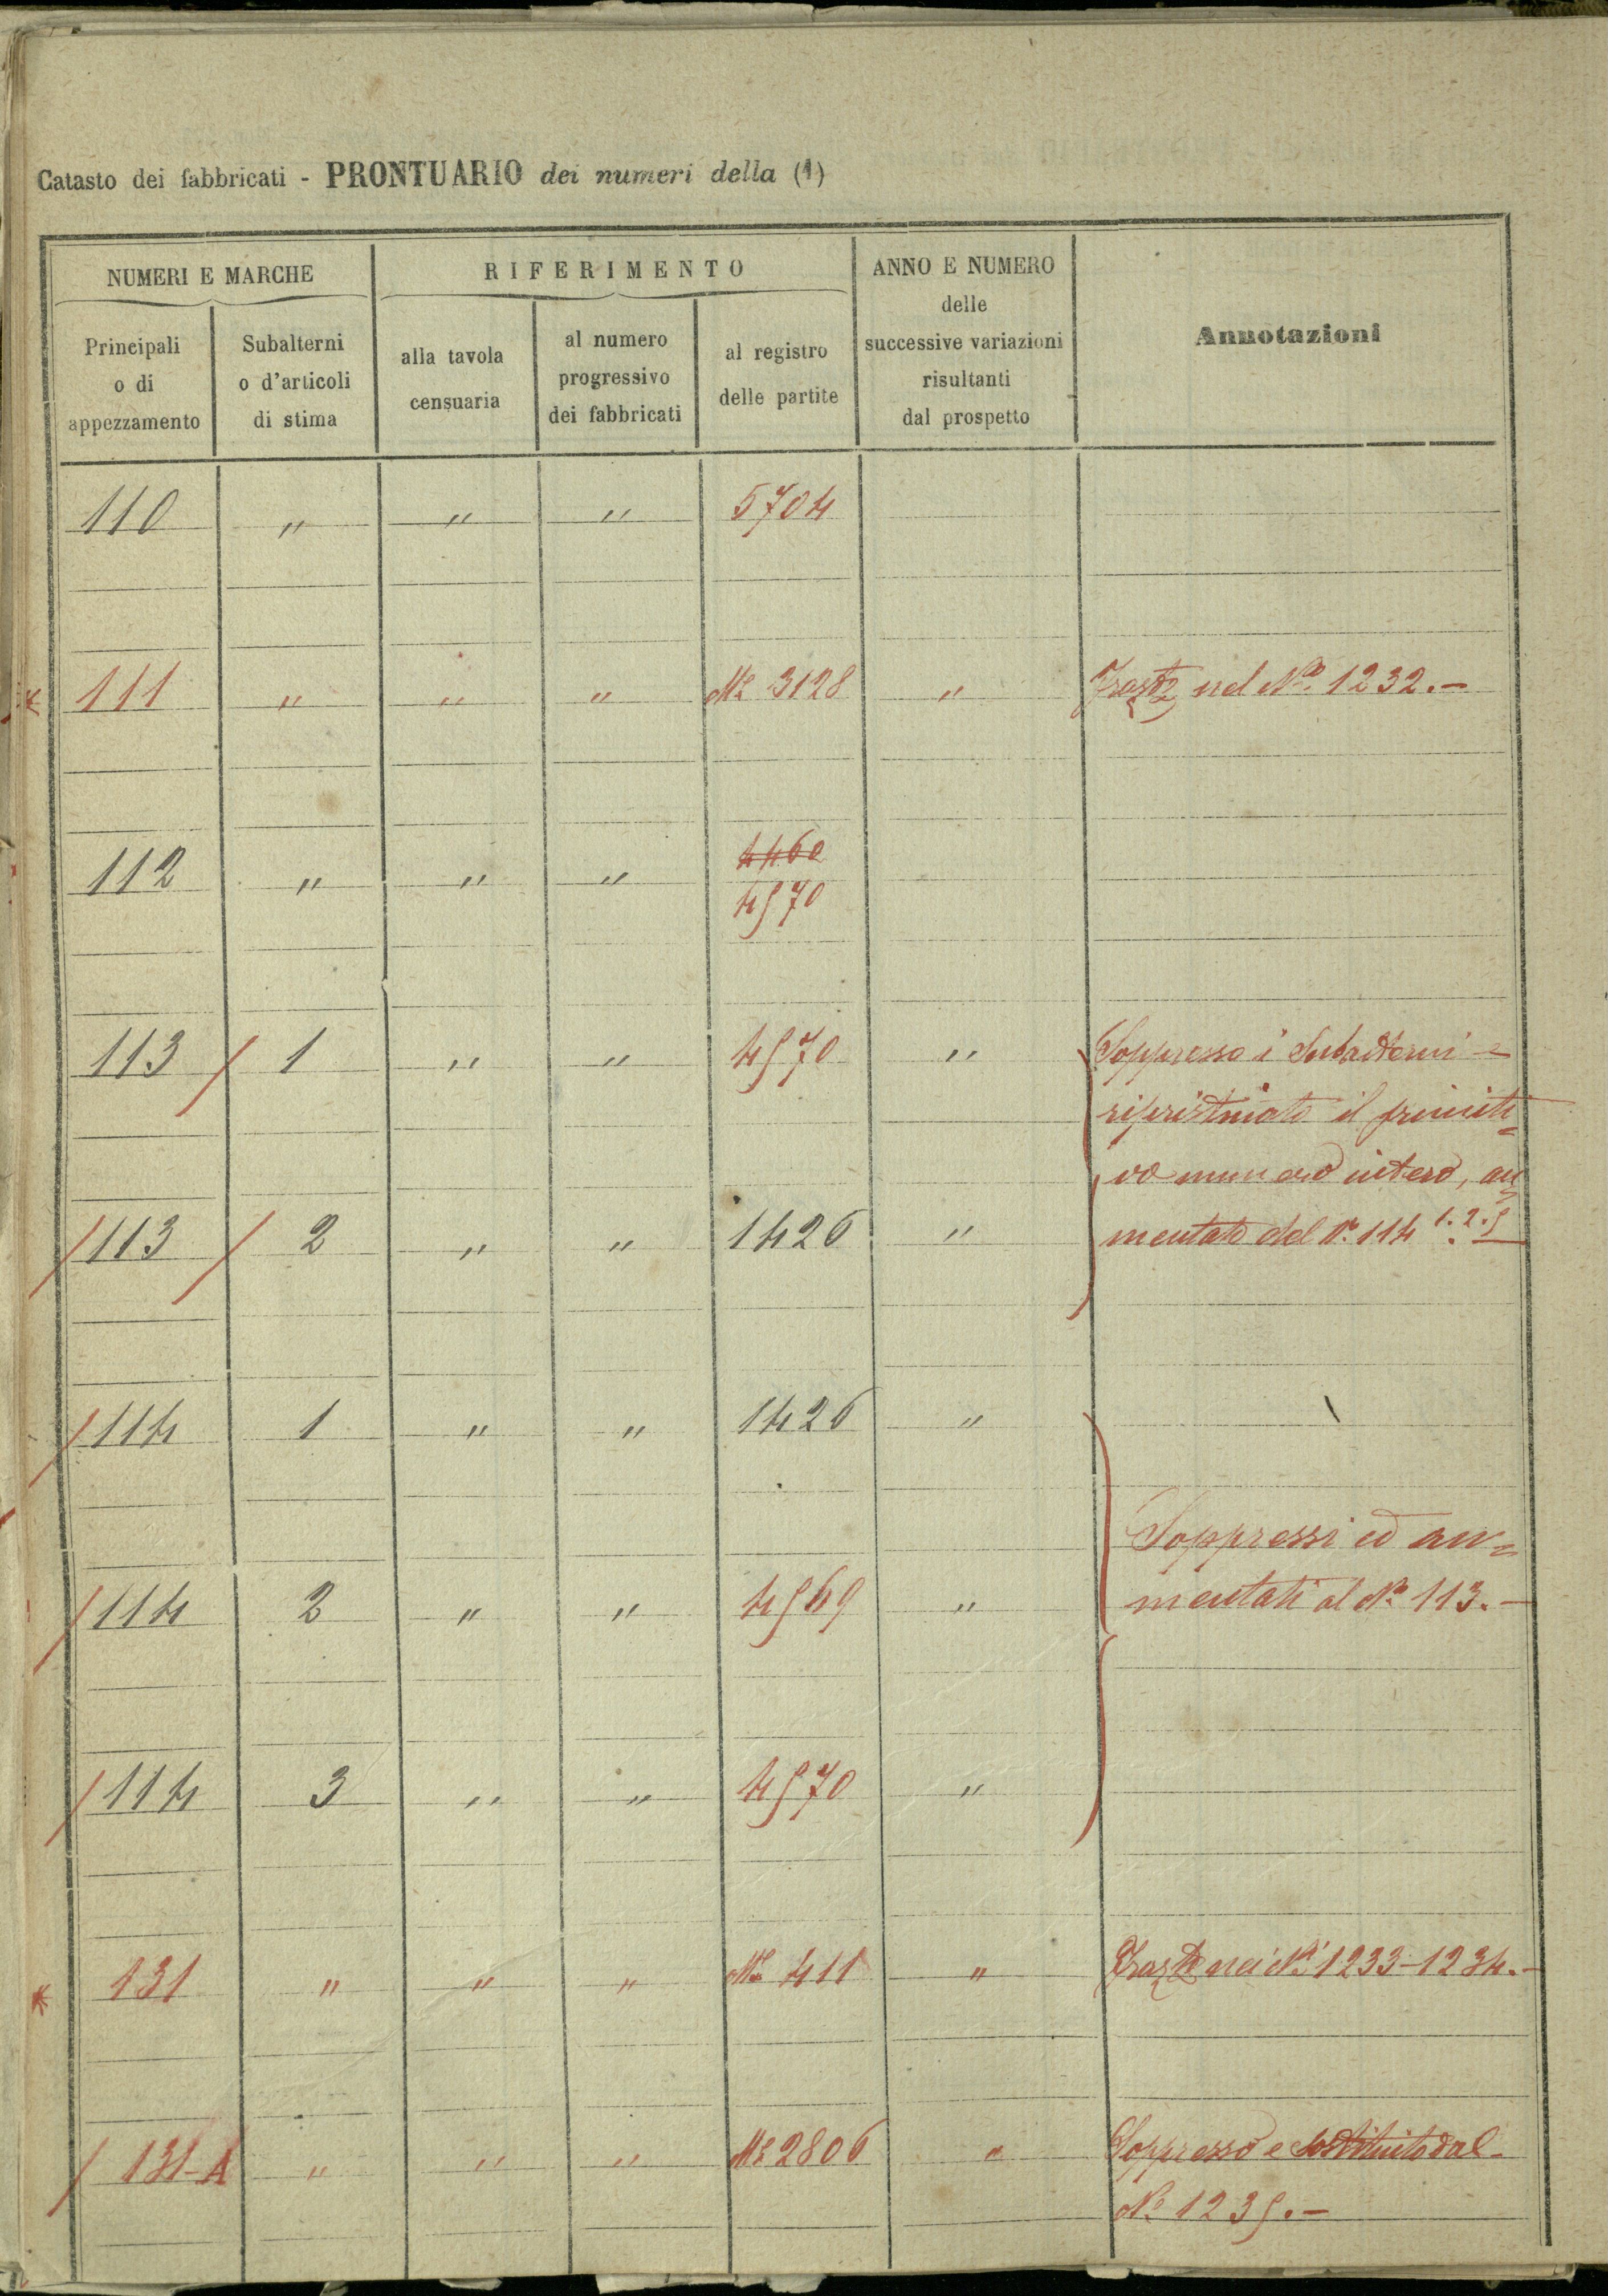 Catasto dei fabbricati - PRONTUARIO dei numeri della (1)
NUMERI E MARCHE
RIFERIMENTO
ANNO E NUMERO
delle
successive variazioni
risultanti
dal prospetto
Annotazioni
Principali
o di
appezzamento
Subalterni
o d'articoli
di stima
alla tavola
censuaria
al numero
progressivo
dei fabbricati
al registro
delle partite
110 " " " 5704
111 " " " 3128 " nel N.o 1232.-
112 " " " 4460
4570
113 / 1 " " 4570 " Soppresso i Subalterni e
ripristinato il primiti=
vo numero intero, au=
/ 113 / 2 " " 1426 " mentato del N.o 114 1.2.3
/ 114 1 " " 1426 "
Soppressi ed au=
/ 114 2 " " 4569 " mentati al N.o 113.-
/ 114 3 " " 4570 "
131 " " " 411 " nei N.i 1233-1234.-
/ 131-A " " " 2806 " Soppresso e sostituito dal
N.o 1235.-